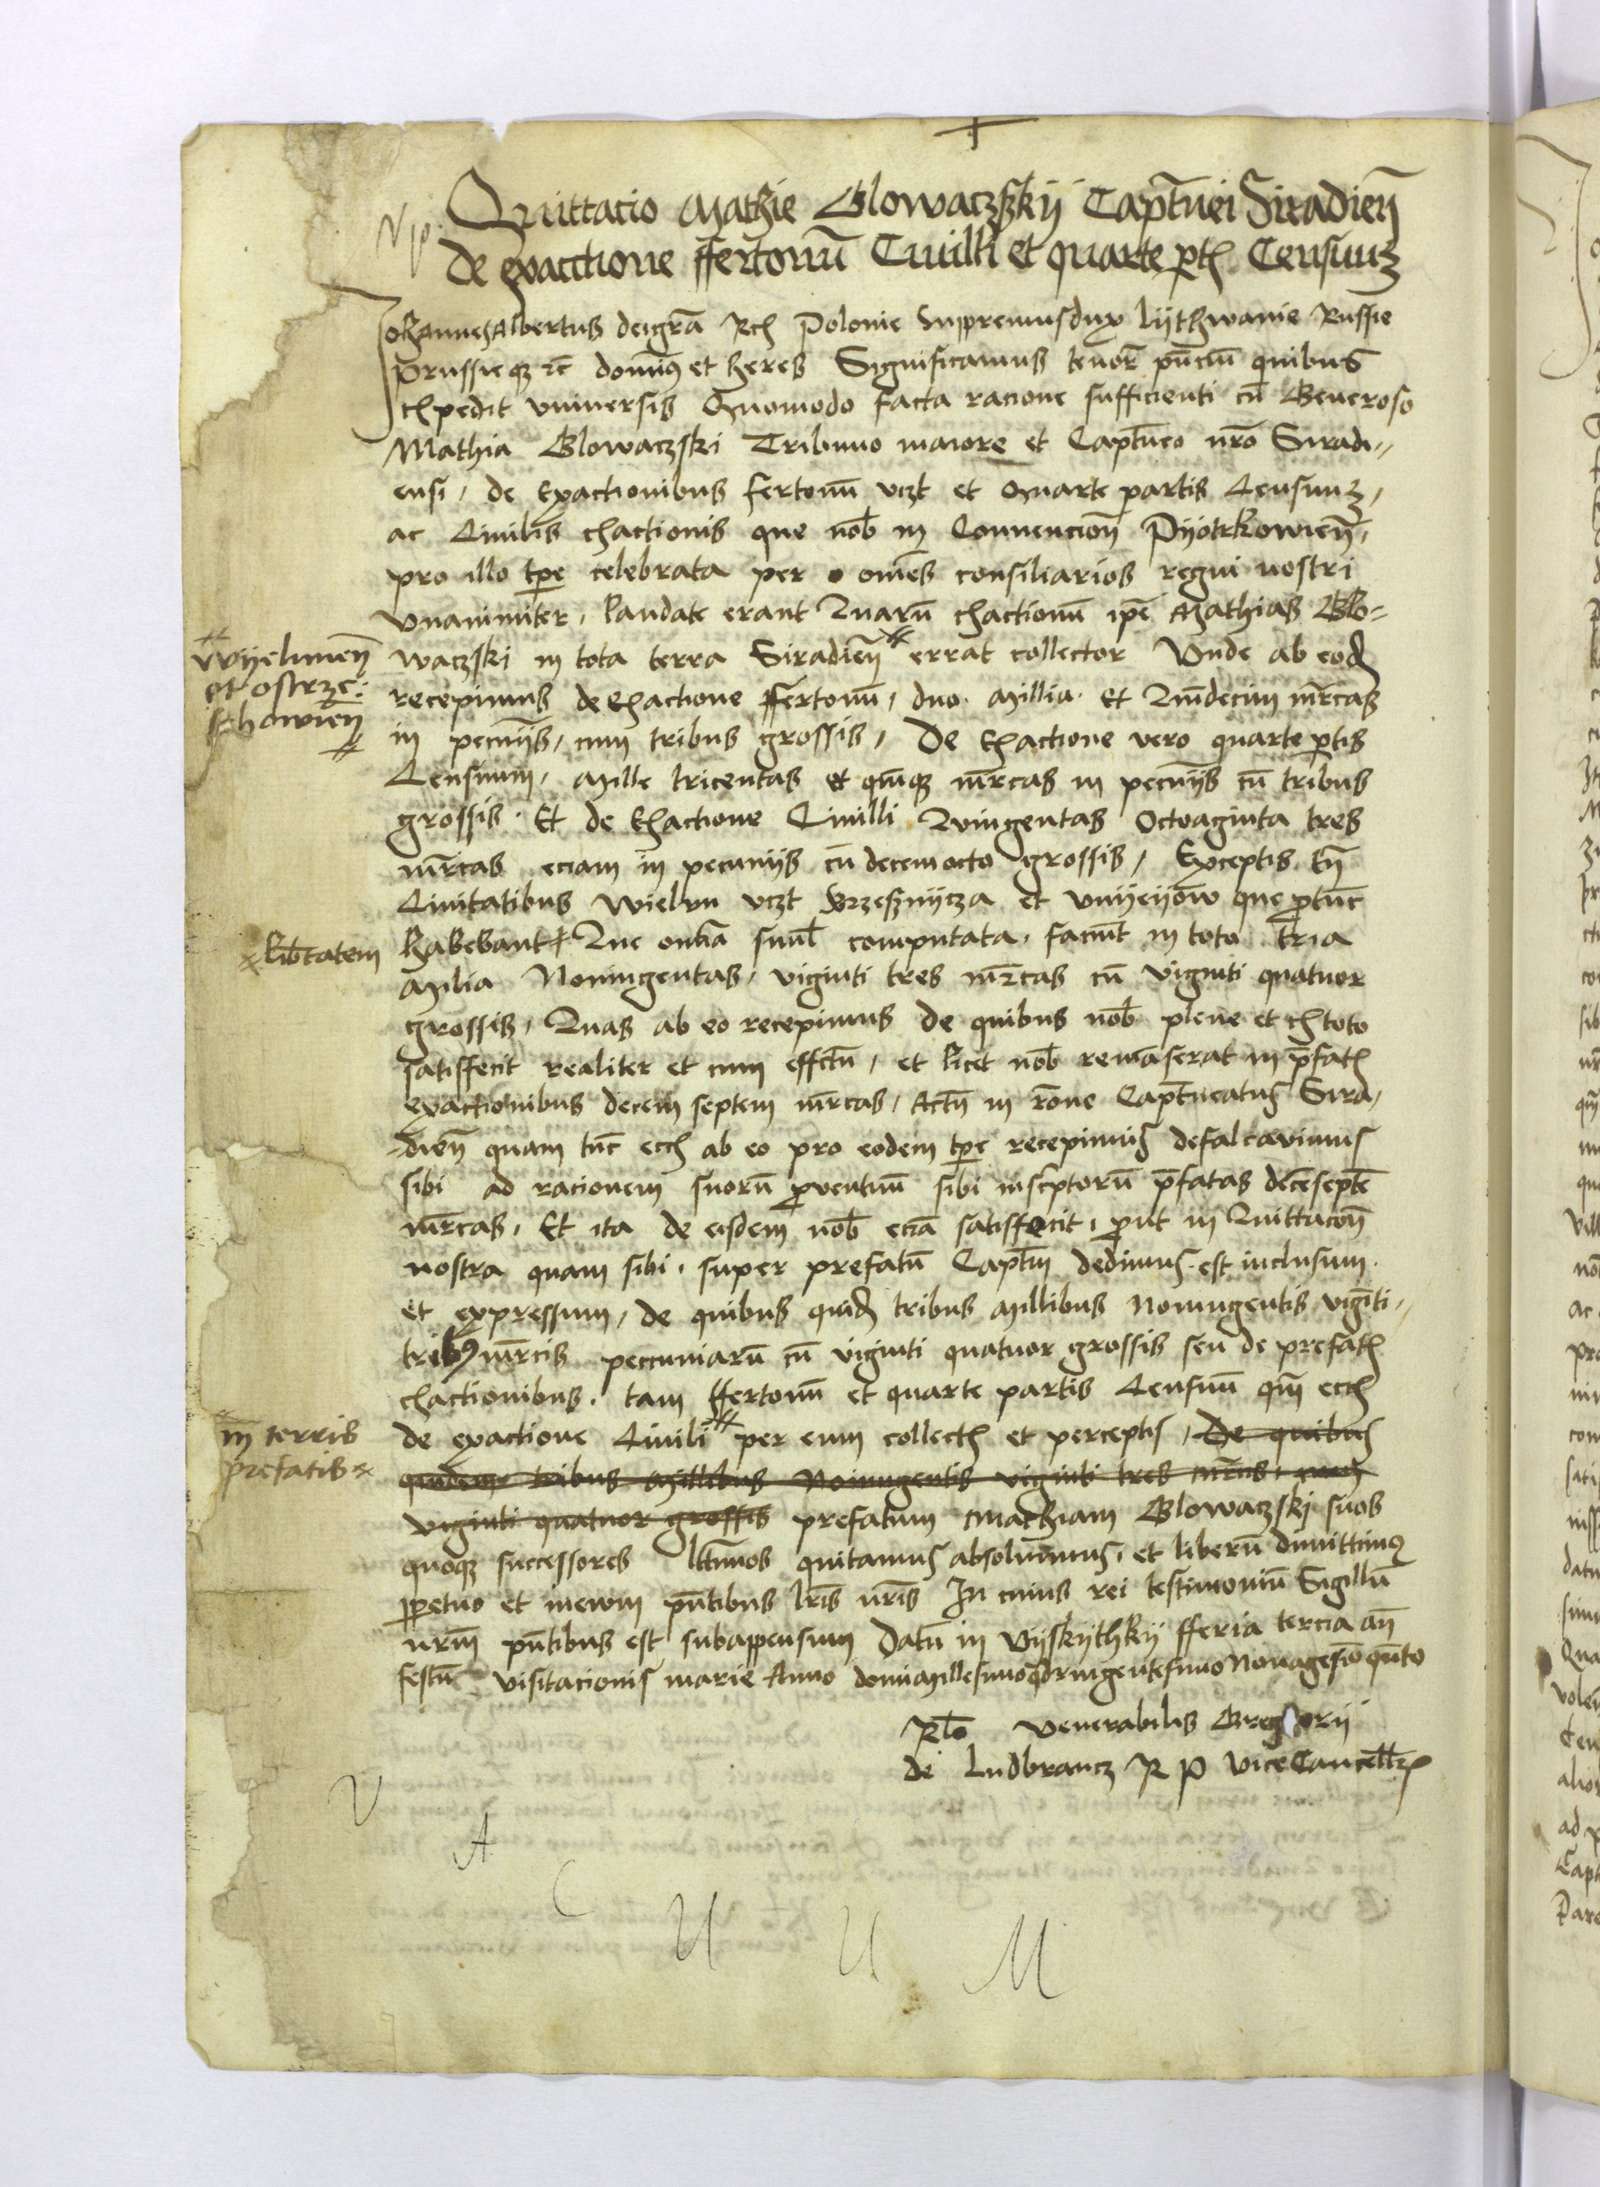 Quittacio Mathie Glowaczskij Captnei Siradien
De exacctione ffertonu Ciuilli et quarte ptis Censuuz
Johannes Albertus dei gra Rex Polonie Suppremus dux lijthwanie Russie
Prussieqz zc dominus et heres Significamus tenor pncium quibus
expedit vniuersis Quomodo facta racione sufficienti cu Generoso
Mathia Glowaczski Tribuno maiore et Captneo nro Siradi
ensi, de Exactionibus fertonu vzt et Quarte partis Censuuz,
ac Ciuilis exactionis que nob in Conuencion Pyotrkowien,
pro illo tpe celebrata per omes consiliarios regni nostri
Vnanimiter, laudate erant Quaru exactionu ipe Mathias Glo-
wyelunen
et ostrze:
schowien
waczski in tota terra Siradien errat collector Vnde ab eod
recepimus de Exactione ffertonu, duo Millia et Quindecim mrcas
in pecunijs, cum tribus grossis, De Exactione vero quarte ptis
Censuum, Mille tricentas et quinqz mrcas in pecunijs cu tribus
grossis. Et de Exactione Ciuilli Quingentas Octoaginta tres
mrcas eciam in pecunijs cu decem octo grossis, Exceptis tn
Ciuitatibus Wielun vzt Brzesznijcza et Vnijeyow que ptunc
libtatem
habebant Que omia simul computata, faciunt in toto tria
Milia Noningentas, viginti tres mrcas cu viginti quatuor
grossis, Quas ab eo recepimus de quibus nob plene et ex toto
satisfecit realiter et cum effctu, et licet nob remaserat in pfatis
exactionibus decem septem mrcas, Actn in rone Captneatus Sira,
dien quam tuc ecia ab eo pro eodem tpe recepimus defalcauimus
sibi ad racionem suoru puentuu sibi inscptoru pfatas decesepte
mrcas, Et ita de eisdem nob ecia satisfecit, put in Quittacon
nostra quam sibi, super prefatu Captm dedimus est inclusum
et expressum, de quibus quid tribus Millibus Noningentis viginti
tribus mrcis peccuniaru cu viginti quatuor grossis seu de prefatis
exactionibus, tam ffertonu et quarte partis Censuu qm ecia
in terris
prefatis
de exactione Ciuili per eum collectis et perceptis, De quibus
quidem tribus Millibus Noningentis viginti tres mrcis, cum
viginti quatuor grossis prefatum Mathiam Glowaczski suos
quoqz successores lttimos quitamus absoluimus, et liberu dimittimus
ppetuo et in ewm pntibus lris nris In cuius rei testimoniu Sigillu
nrm pntibus est subappensum Datu in Vijskijthkij fferia tercia an
festu visitacionis marie Anno domi Millesimo qdringentesimo Nonagesio qnto
Rlo Venerabilis Gregorij
de Ludbrancz R P ViceCancellrij
V A C U U M